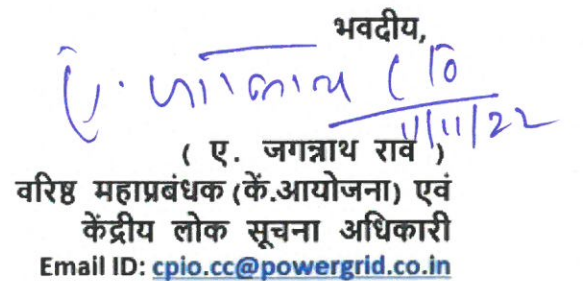 भवदीय,
ए. जगन्नाथ राव
11/11/22
( ए. जगन्नाथ राव )
वरिष्ठ महाप्रबंधक (कें.आयोजना) एवं
केंद्रीय लोक सूचना अधिकारी
Email ID: cpio.cc@powergrid.co.in